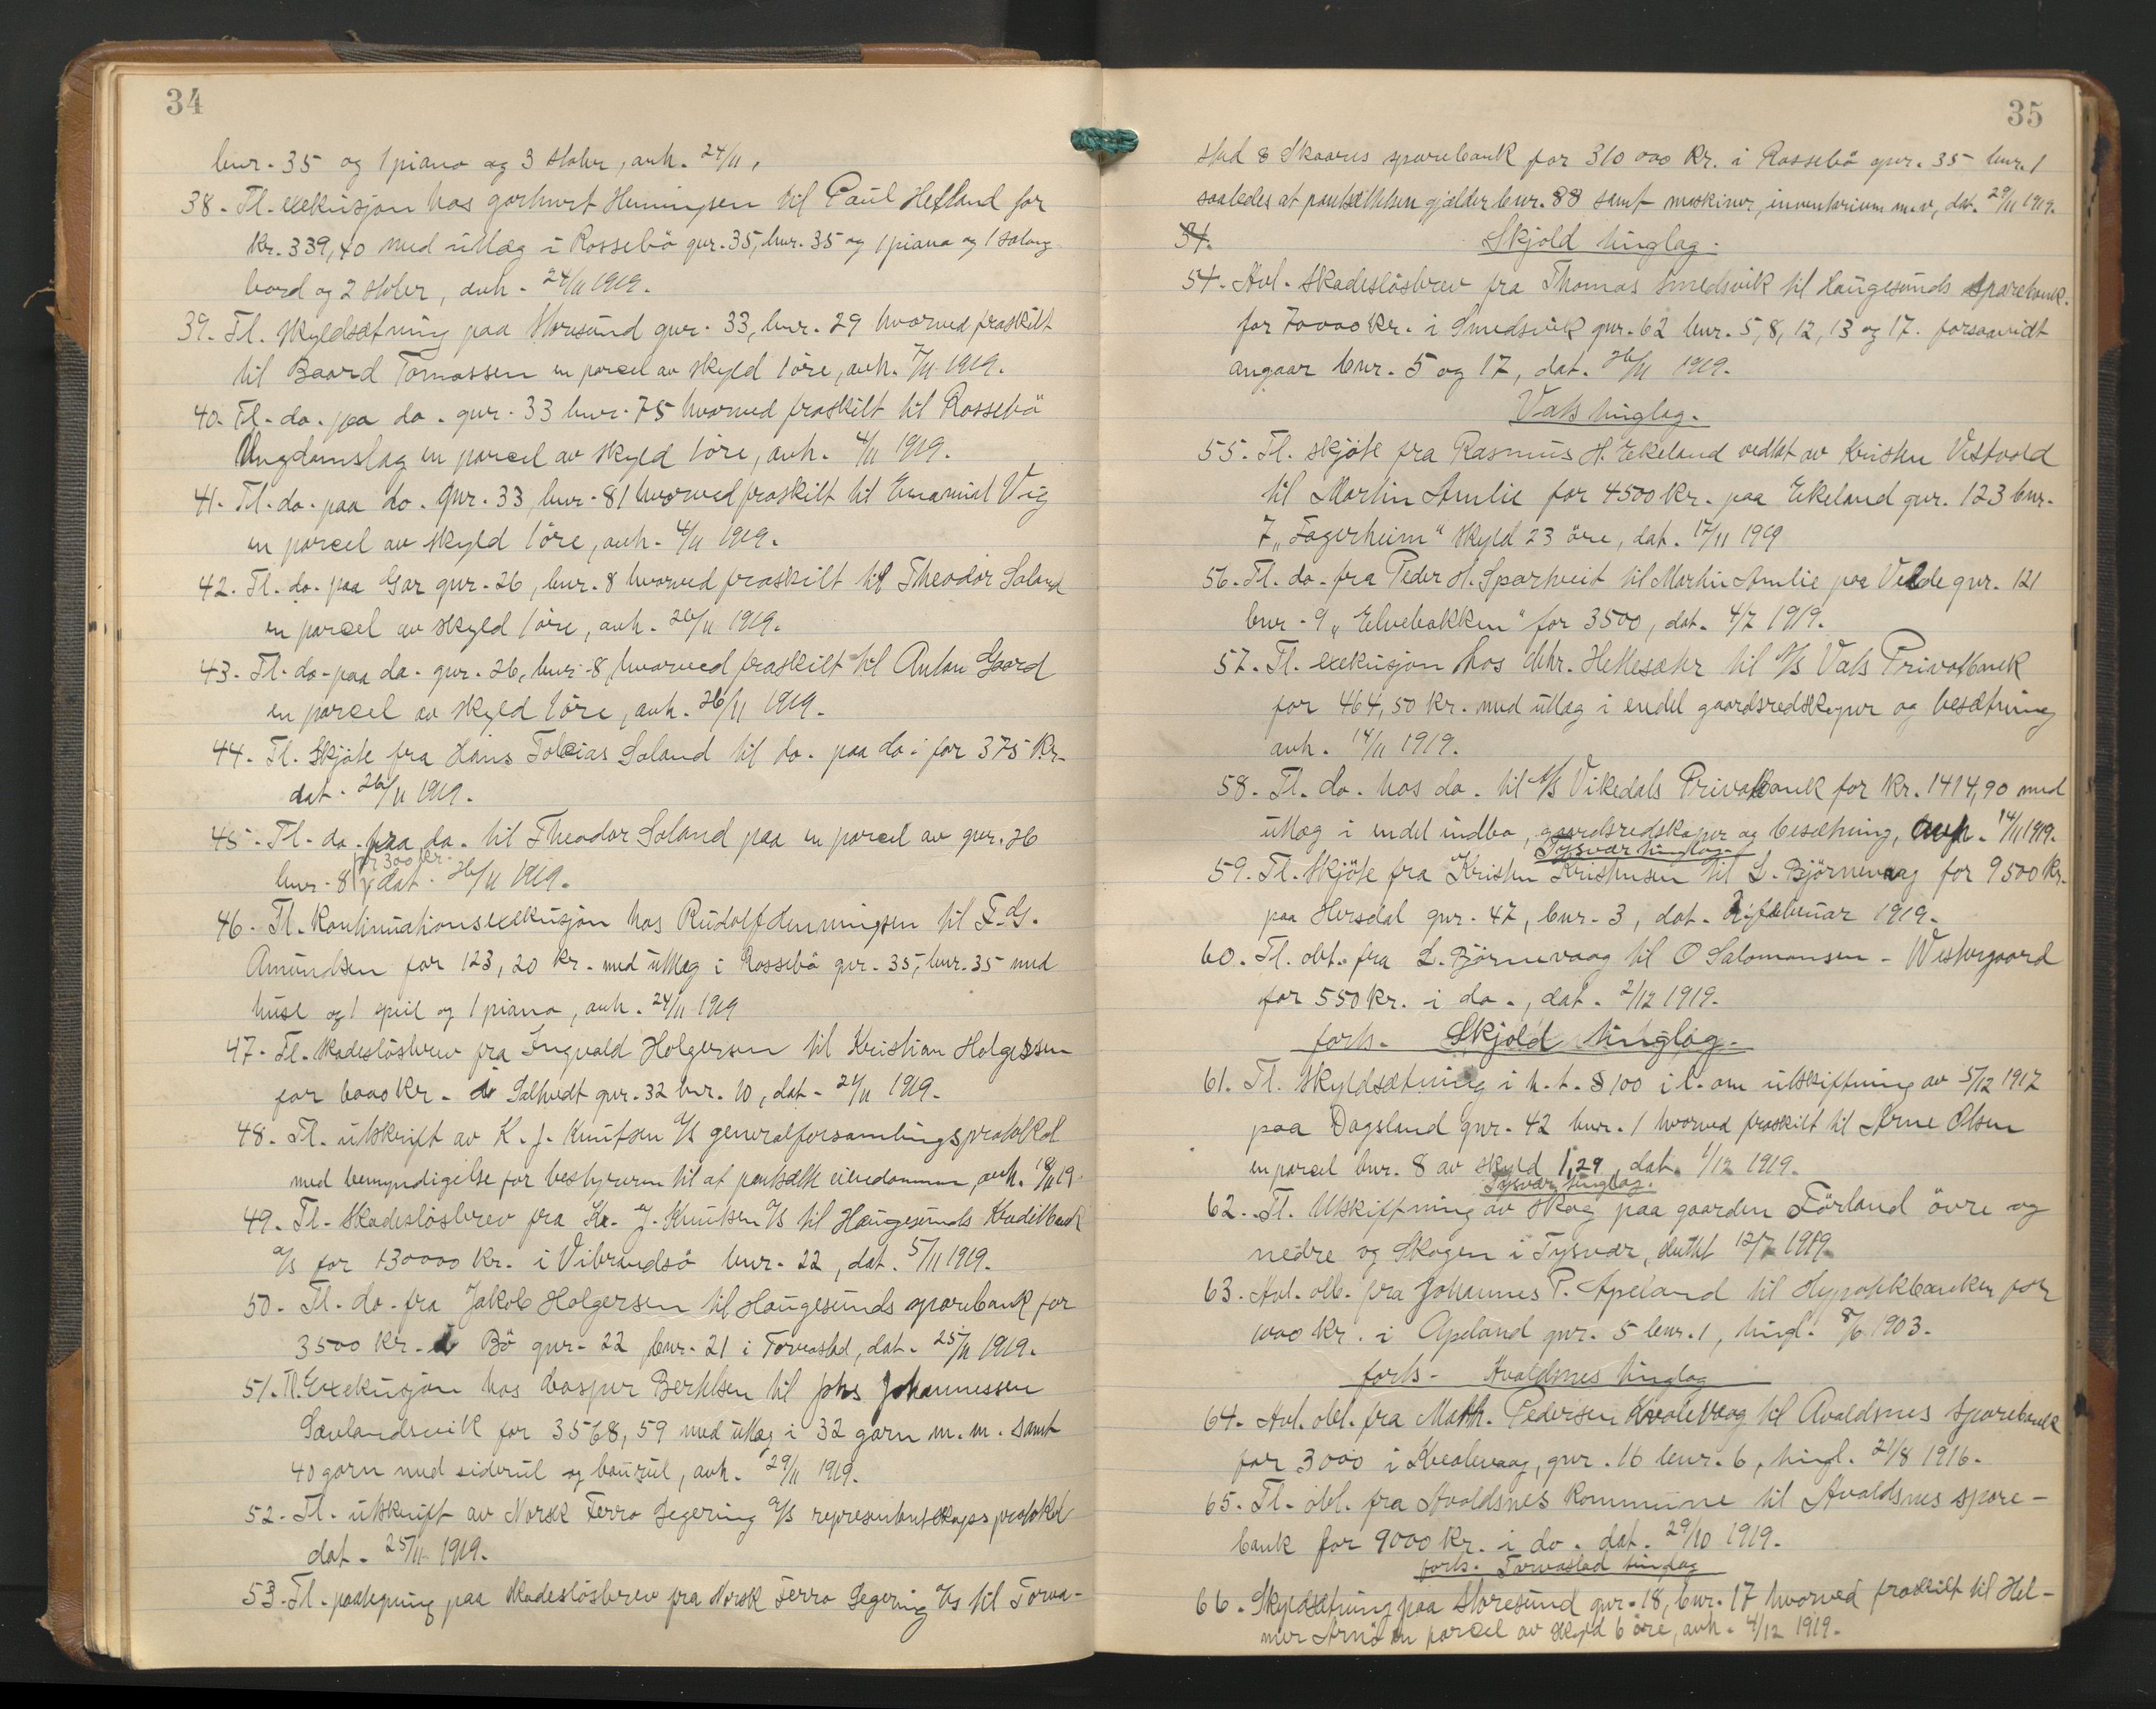 34
bnr. 35 og 1 piano og 3 stoler, avh. 24/11.
38. Tl. exekusjon hos garhurt Henningsen til Paul Hetland for
Kr. 339,40 med utlæg i Rossebö gnr. 35, bnr. 35 og 1 piano og 1 salong
bord og 2 stoler, avh. 24/11 1919.
39. Tl. skyldsætning paa Storesund gnr. 33, bnr. 29 hvorved fraskilt
til Baard Tomassen en parcel av skyld 1 öre, avh. 7/11 1919.
40. Tl. do. paa do. gnr. 33 bnr. 75 hvorved fraskilt til Rossebö
Ungdomslag en parcel av skyld 1 öre, avh. 4/11 1919.
41. Tl. do. paa do. gnr. 33, bnr. 81 hvorved fraskilt til Emanuel Vig
en parcel av skyld 1 öre, avh. 4/11 1919.
42. Tl. do. paa Gar gnr. 26, bnr. 8 hvorved fraskilt til Theodor Saland
en parcel av skyld 1 öre, avh. 26/11 1919.
43. Tl. do. paa do. gnr. 26, bnr. 8, hvorved fraskilt til Anton Gaard
en parcel av skyld 1 öre, avh. 26/11 1919.
44. Tl. Skjöte fra Hans Tobias Saland til do. paa do. for 375 Kr.
dat. 26/11 1919.
45. Tl. do. fra do. til Theodor Saland paa en parcel av gnr. 26
for 300 kr.
bnr. 8, dat. 26/11 1919.
46. Tl. Kontinuationsexekusjon hos Rudolf Henningsen til F. G.
Amundsen for 123,20 Kr. med utlæg i Rossebö gnr. 35, bnr. 35 med
huse og 1 speil og 1 piano, avh. 24/11 1919
47. Tl. skadeslösbrev fra Ingvald Holgersen til Kristian Holgersen
for 6000 Kr. i Saltvedt gnr. 32 bnr. 10, dat. 24/11 1919.
48. Tl. utskrift av K. J. Knutsen A/S generalforsamlingsprotokol
med bemyndigelse for bestyreren til at pantsætte eiendommen, avh. 18/11 19.
49. Tl. Skadeslösbrev fra Kr. J. Knutsen A/S til Haugesunds Kreditbank
A/S for 130000 Kr. i Vibrandsö bnr. 22, dat. 5/11 1919.
50. Tl. do. fra Jakob Holgersen til Haugesunds sparebank for
3500 Kr. i Bö gnr. 22 bnr. 21 i Torvastad, dat. 25/11 1919.
51. Tl. Exekusjon hos Casper Bertelsen til Johs Johannessen
Sævlandsvik for 3568,59 med utlæg i 32 garn m.m. samt
40 garn med siderul og baurul, avh. 29/11 1919.
52. Tl. utskrift av Norsk Ferro Legering A/S representantskapsprotokol
dat. 25/11 1919.
53. Tl. paategning paa skadeslösbrev fra Norsk Ferro Legering A/S til Torva-
35
stad & Skaares sparebank for 310 000 Kr. i Rossebö gnr. 35 bnr. 1
saaledes at pantsættelsen gjælder bnr. 88 samt maskiner, inventarium m.v, dat. 29/11 1919.
54.
Skjold tinglag.
54. Avl. Skadeslösbrev fra Thomas Smedsvik til Haugesunds Sparebank.
for 70000 Kr. i Smedsvik gnr. 62 bnr. 5, 8, 12, 13 og 17. forsaavidt
angaar bnr. 5 og 17, dat. 26/11 1919.
Vats tinglag.
55. Tl. skjöte fra Rasmus H. Ekeland vedtat av Kristen Vestvold
til Martin Amlie for 4500 Kr. paa Ekeland gnr. 123 bnr.
7 „Fagerheim“ skyld 23 öre, dat. 17/11 1919
56. Tl. do. fra Peder H. Spartveit til Martin Amlie paa Velde gnr. 121
bnr. 9 „Elvebakken“ for 3500, dat. 4/7 1919.
57. Tl. exekusjon hos Chr. Hettesæter til A/S Vats Privatbank
for 464,50 Kr. med utlæg i endel gaardsredskaper og besætning
avh. 14/11 1919.
58. Tl. do. hos do. til A/S Vikedals Privatbank for Kr. 1414,90 med
utlæg i endel indbo, gaardsredskaper og besætning, avh. 14/11 1919.
Tysvær tinglag.
59. Tl. Skjöte fra Kristen Kristensen til L. Björnevaag for 9500 Kr.
paa Hersdal gnr. 47, bnr. 3, dat. 2. februar 1919.
60. Tl. obl. fra L. Björnevaag til O Salomonsen - Westergaard
for 550 Kr. i do., dat. 2/12 1919.
forts. Skjold tinglag.
61. Tl. skyldsætning i h. t. § 100 i l. om utskiftning av 5/12 1917
paa Dagsland gnr. 42 bnr. 1 hvorved fraskilt til Arne Olsen
en parcel bnr. 8 av skyld 1,29, dat. 1/12 1919.
Tysvær tinglag.
62. Tl. Utskiftning av skog paa gaarden Förland övre og
nedre og Skogen i Tysvær, sluttet 12/7 1919.
63. Avl. obl. fra Johannes T. Apeland til Hypotekbanken for
1000 Kr. i Apeland gnr. 5 bnr. 1, tingl. 8/6 1903.
forts. Avaldsnes tinglag
64. Avl. obl. fra Math. Pedersen Kvalevaag til Avaldsnes Sparebank
for 3000 i Kvalevaag, gnr. 16 bnr. 6, tingl. 21/8 1916.
65. Tl. obl. fra Avaldsnes Kommune til Avaldsnes spare-
bank for 9000 Kr. i do. dat. 29/10 1919.
forts. Torvastad tinglag
66. Skyldsætning paa Storesund gnr. 18, bnr. 17 hvorved fraskilt til Hel-
mer Arnö en parcel av skyld 6 öre, avh. 4/12 1919.